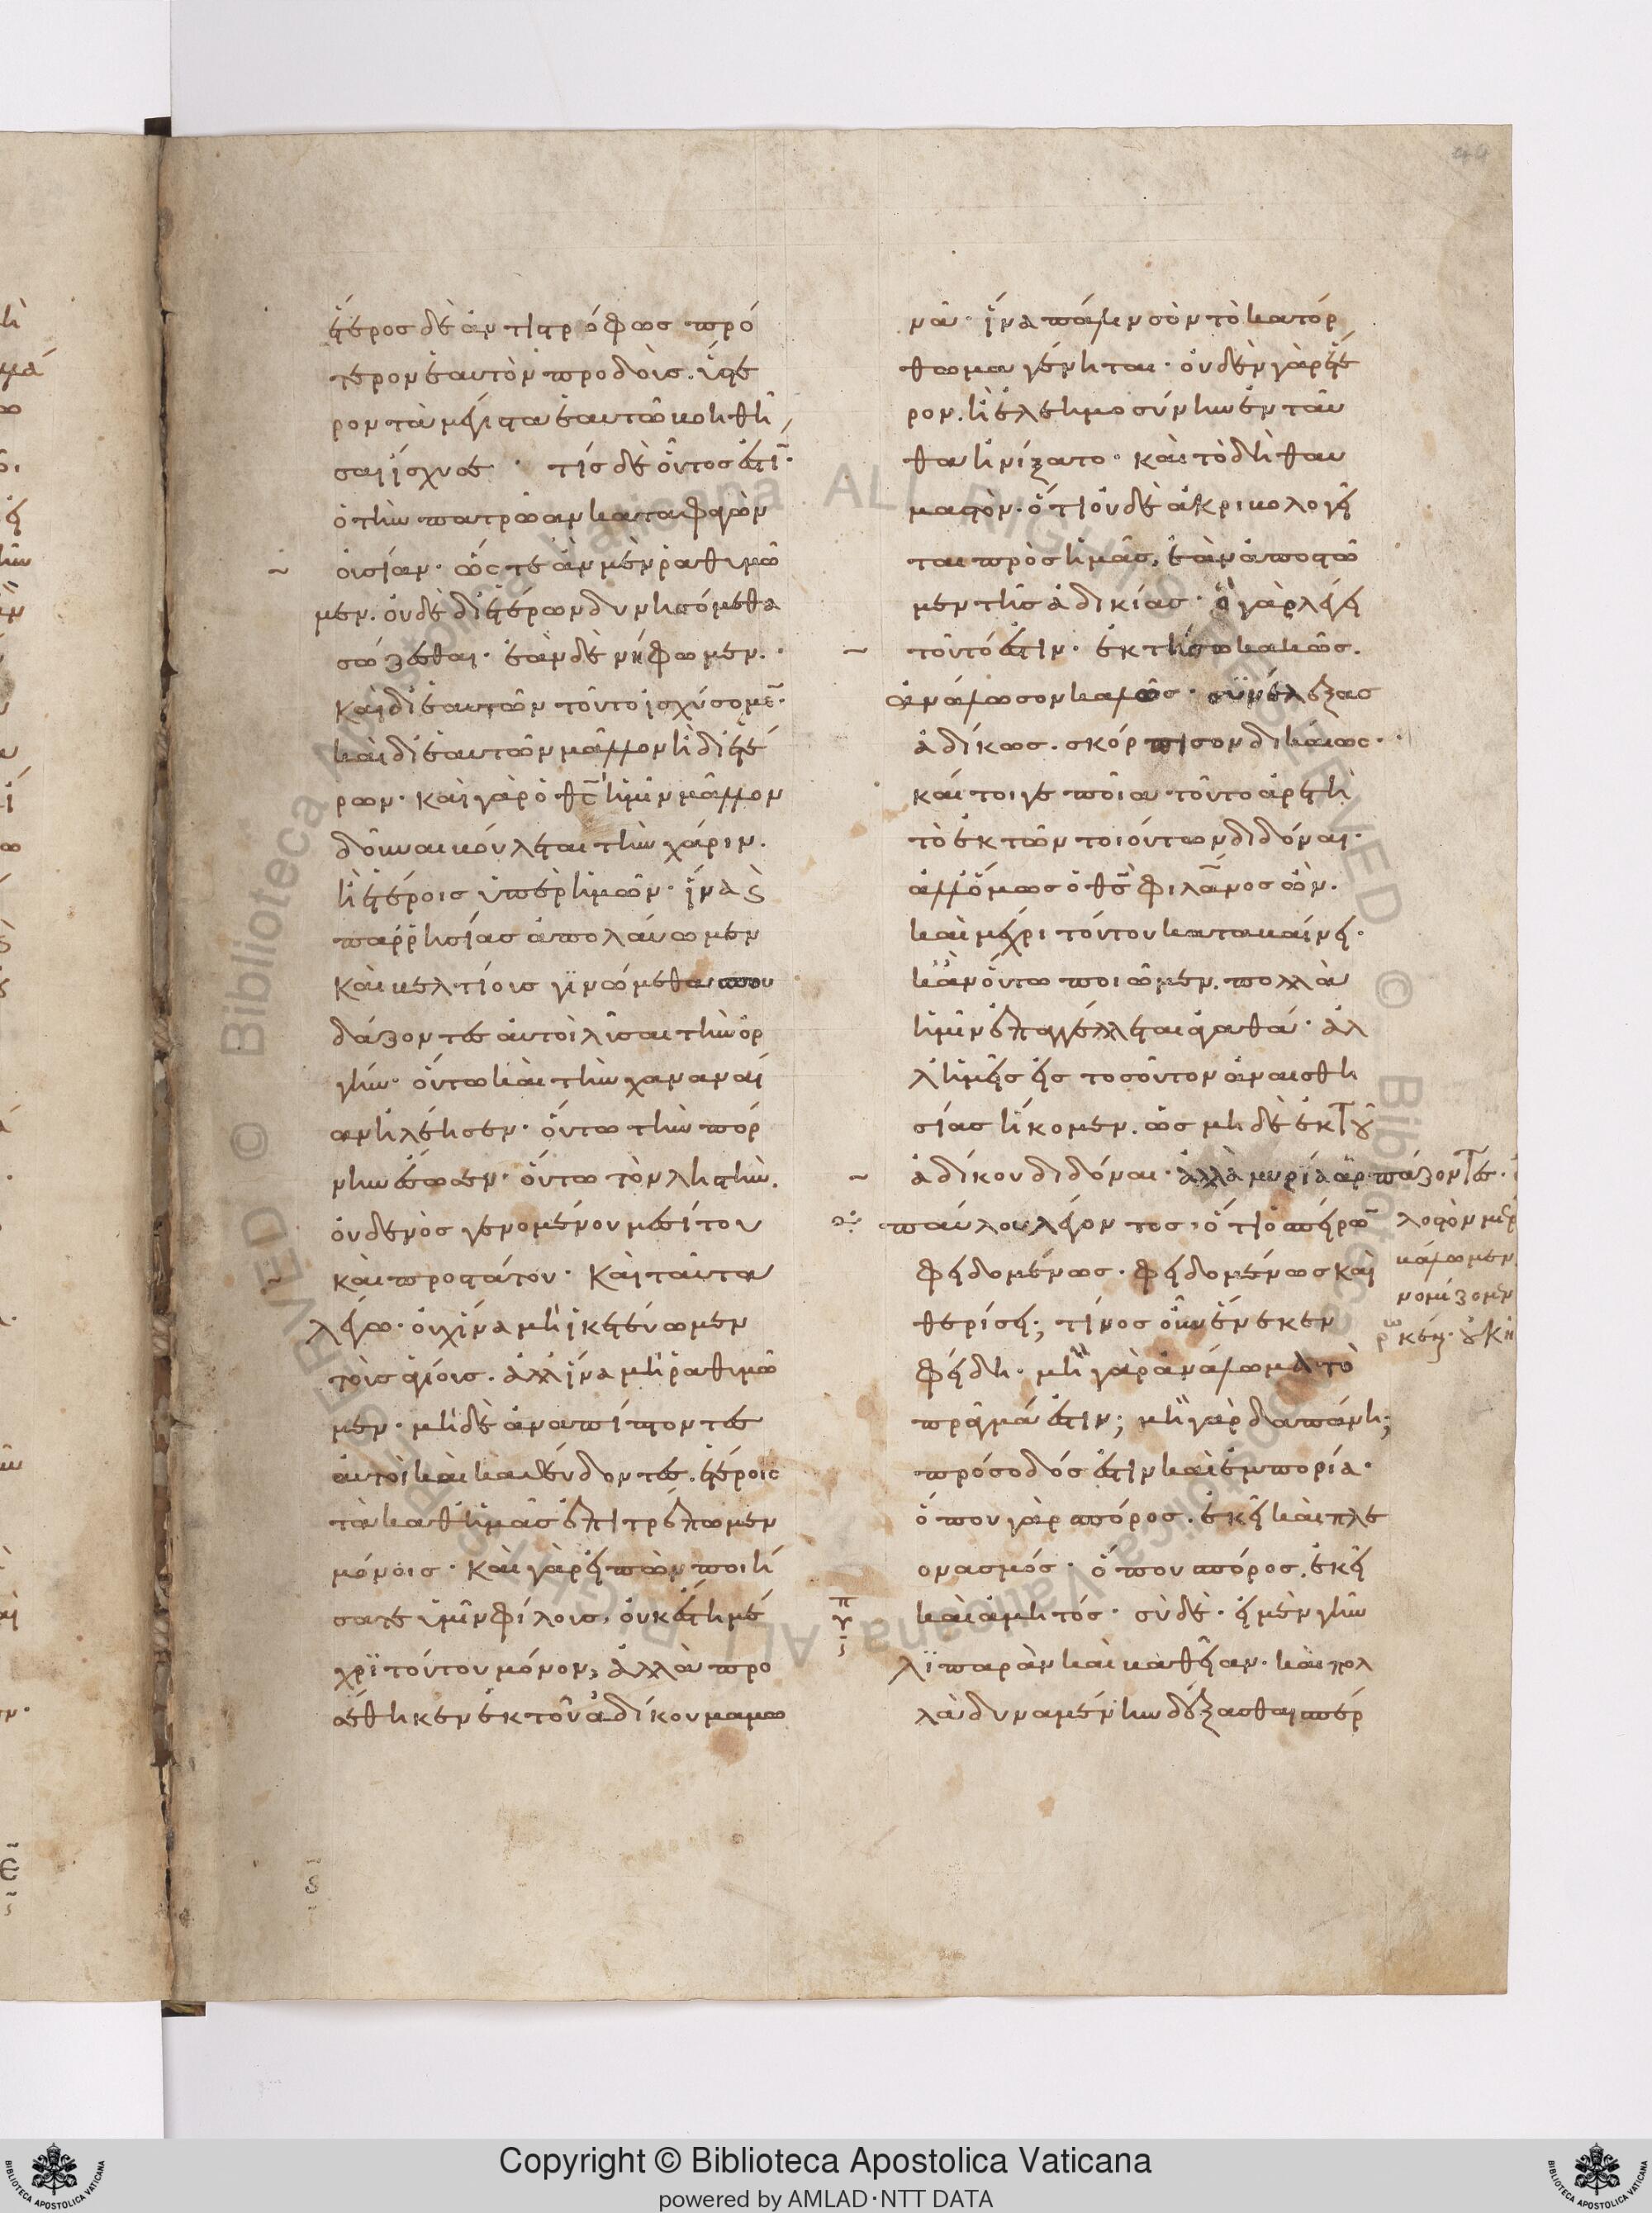 ἕτερος δὲ ἀντιστρόφως πρό
τερον ἑαυτὸν προδοὺς. ὕστε
ρον τὰ μέγιστα ἑαυτῶ βοηθῆ
σαι ἴσχυσε· τίς δὲ οὗτος ἐστῖ·
ὁ τὴν πατρώαν καταφαγὼν
οὐσίαν· ὥστε ἂν μὲν ῥαθυμῶ
μεν. οὐδὲ δι ἑτέρων δυνησόμεθα
σώζεσθαι· ἐὰν δὲ νήφωμεν.
καὶ δι ἑαυτῶν τοῦτο ἰσχύσομε̄·
καὶ δι ἑαυτῶν μᾶλλον ἢ δι ἑτέ
ρων· καὶ γὰρ ὁ θ̅ς̅ ἡμῖν μᾶλλον
δοῦναι βούλεται τὴν χάριν.
ἢ ἑτέροις ὑπὲρ ἡμῶν· ἵνα ϗ
παρρησίας ἀπολαύωμεν
καὶ βελτίους γϊνώμεθα σπου
δάζοντες αὐτοὶ λῦσαι τὴν ὀρ
γήν· οὕτω καὶ τὴν χαναναί
αν ἠλέησεν· οὕτω τὴν πόρ
νην ἔσωσεν· οὕτω τὸν ληστὴν.
οὐδενὸς γενομένου μεσίτου
καὶ προστάτου· καὶ ταῦτα
λέγω· οὐχ ἵνα μὴ ἱκετεύωμεν
τοὺς ἁγίους. ἀλλ ἵνα μὴ ῥαθυμῶ
μεν· μηδὲ ἀναπίπτοντες
αὐτοὶ καὶ καθεύδοντες. ἑτέροις
τὰ καθ ἡμᾶς ἐπιτρέπωμεν
μόνοις· καὶ γὰρ εἰπὼν ποιή
σατε ὑμῖν φίλους, οὐκ ἔστη μέ
χρϊ τούτου μόνον, ἀλλὰ προ
σέθηκεν ἐκ τοῦ ἀδίκου μαμω
νᾶ· ἵνα πάλιν σὸν τὸ κατόρ
θωμα γένηται· οὐδὲν γὰρ ἕτε
ρον. ἢ ἐλεημοσύνην ἐνταῦ
θα ἠνίξατο· καὶ τὸ δὴ θαυ
μαστὸν. ὅτι οὐδὲ ἀκριβολογεῖ
ται πρὸς ἡμᾶς, ἐὰν ἀποστῶ
μεν τῆς ἀδικίας· ὃ γὰρ λέγει
τοῦτό ἐστιν· ἐκτήσω κακῶς.
ἀνάλωσον καλῶς· συνέλεξας
ἀδίκως. σκόρπισον δικαίως·
καίτοιγε ποία τοῦτο ἀρετὴ
τὸ ἐκ τῶν τοιούτων διδόναι·
ἀλλ ὅμως ὁ θ̅ς̅ φιλᾱνος ὢν.
καὶ μέχρι τούτου καταβαίνει·
κἂν οὕτω ποιῶμεν. πολλὰ
ἡμῖν ἐπαγγέλλεται ἀγαθά· ἀλ
λ ἡμεῖς εἰς τοσοῦτον ἀναισθη
σίας ἥκομεν. ὡς μηδὲ ἐκ τοῦ
ἀδίκου διδόναι· ἀλλὰ μυρία ἁρπάζοντες.
παύλου λέγοντος· ὅτι ὁ σπείρω̄
φειδομένως. φειδομένως καὶ
θερίσει; τίνος οὖν ἕνεκεν
φείδη· μὴ γὰρ ἀνάλωμα τὸ
πρᾶγμά ἐστιν; μὴ γὰρ δαπάνη;
πρόσοδός ἐστιν καὶ ἐμπορία·
ὅπου γὰρ σπόρος. ἐκεῖ καὶ πλε
ονασμός· ὅπου σπόρος. ἐκεῖ
καὶ ἀμητός· σὺ δὲ. εἰ μὲν γῆν
λϊπαρὰν καὶ βαθεῖαν. καὶ πολ
λὰ δυναμένην δέξασθαι σπέρ
Copyright © Biblioteca Apostolica Vaticana
powered by AMLAD·NTT DATA